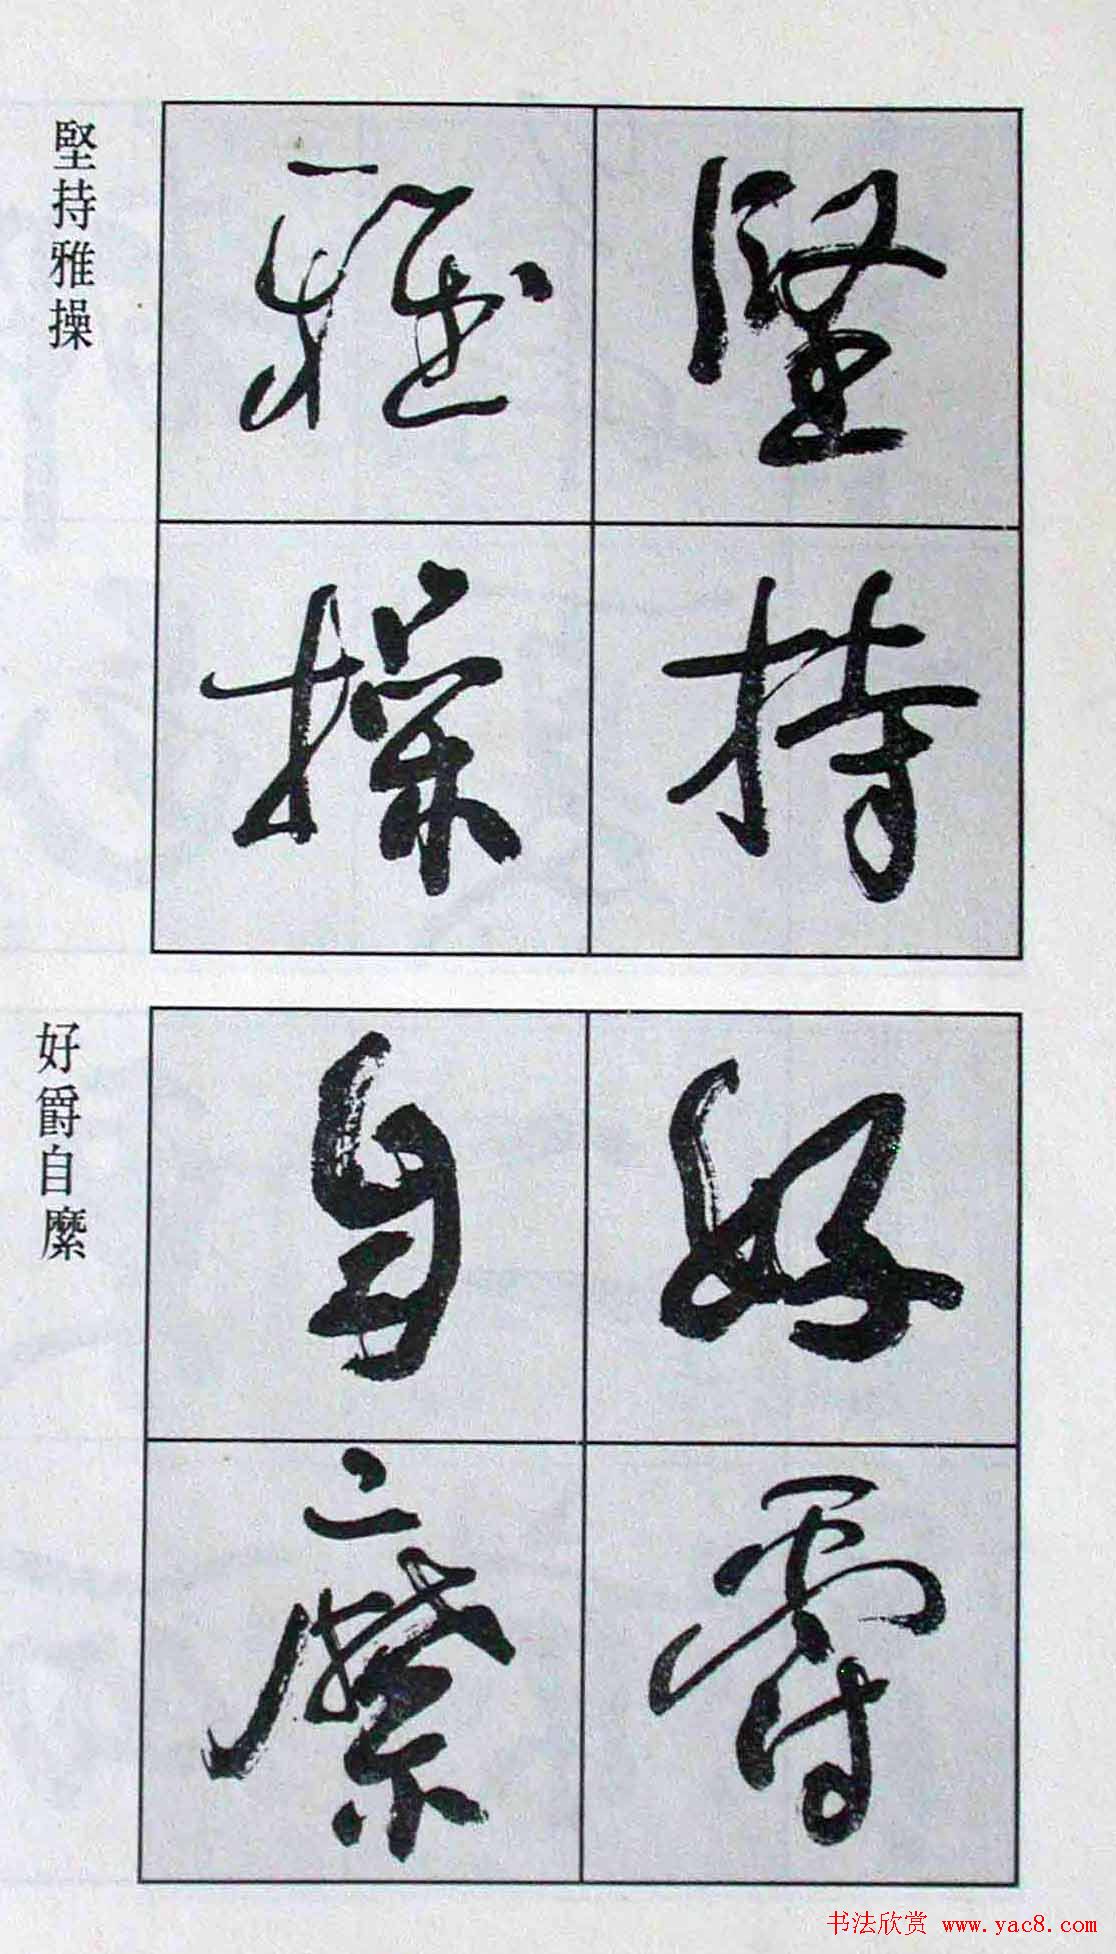 堅持
雅操
堅持雅操
好爵
自縻
好爵自縻
书法欣赏 www.yac8.com